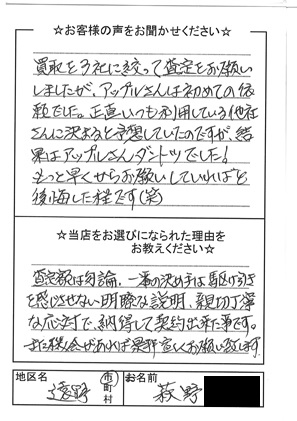 ☆お客様の声をお聞かせください☆
買取を3社に絞って査定をお願い
しましたが、アップルさんは初めての依
頼でした。正直いつも利用している他社
さんに決まると予想していたのですが、結
果はアップルさんダントツでした!
もっと早くからお願いしていればと
後悔した程です(笑)
☆当店をお選びになられた理由を
お教えください☆
査定額は勿論、一番の決め手は駆け引き
を感じさせない明瞭な説明、親切丁寧
な応対で、納得して契約出来た事です。
また機会があれば是非宜しくお願い致します
地区名
遠野
市
町
村
お名前
萩野